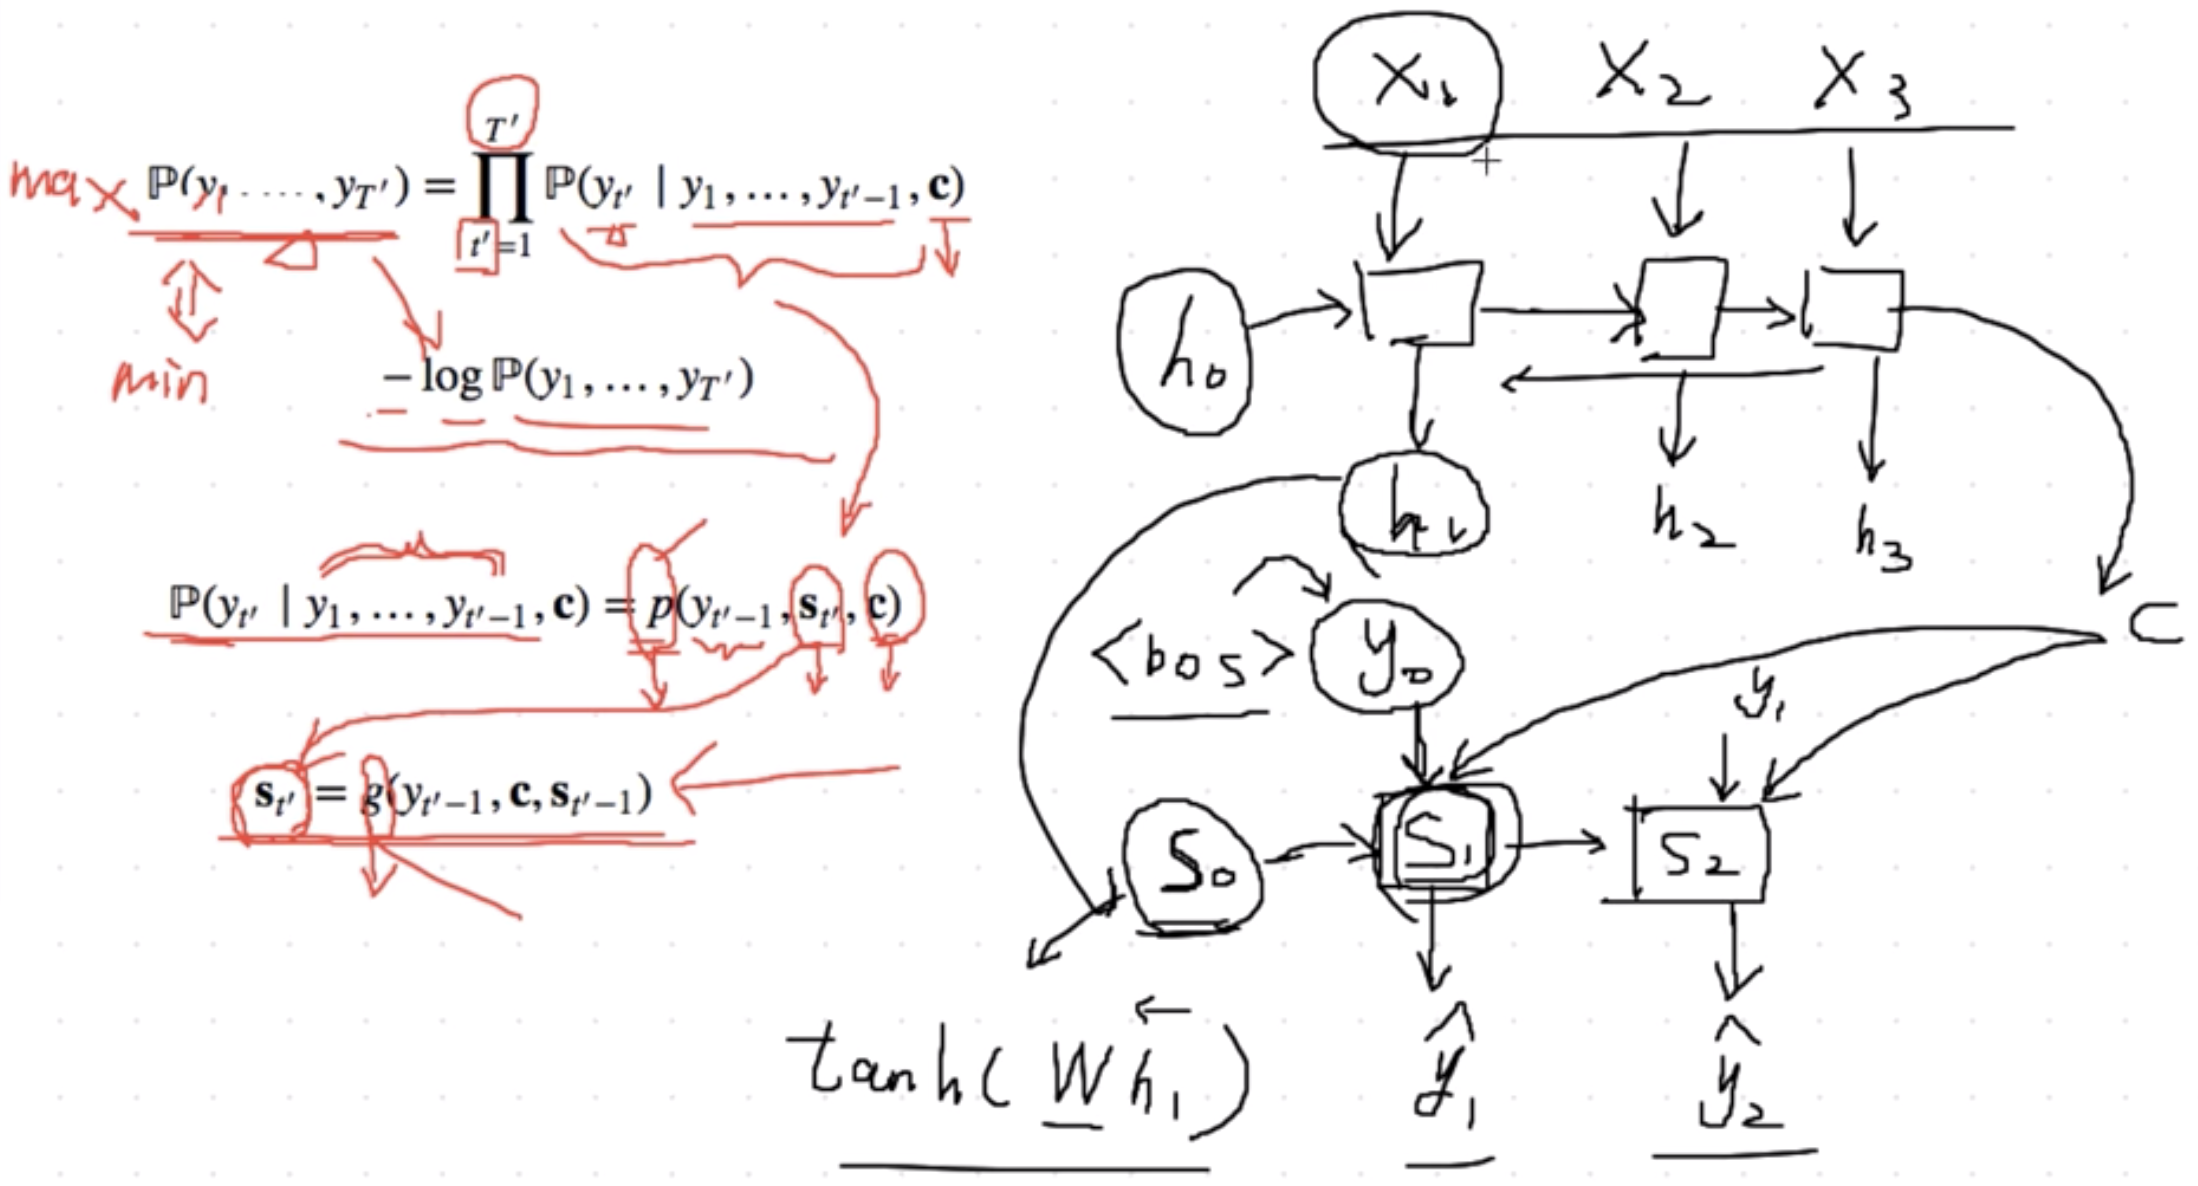 max ℙ(y₁, …, y_T′) = ∏_{t′=1}^{T′} ℙ(y_t′ | y₁, …, y_{t′−1}, c)
min
− log ℙ(y₁, …, y_T′)
ℙ(y_t′ | y₁, …, y_{t′−1}, c) = p(y_{t′−1}, s_t′, c)
s_t′ = g(y_{t′−1}, c, s_{t′−1})
x₁ x₂ x₃
h₀
h₁ h₂ h₃
c
<bos> y₀ y₁
S₀ S₁ S₂
tanh(W h⃖₁) ŷ₁ ŷ₂